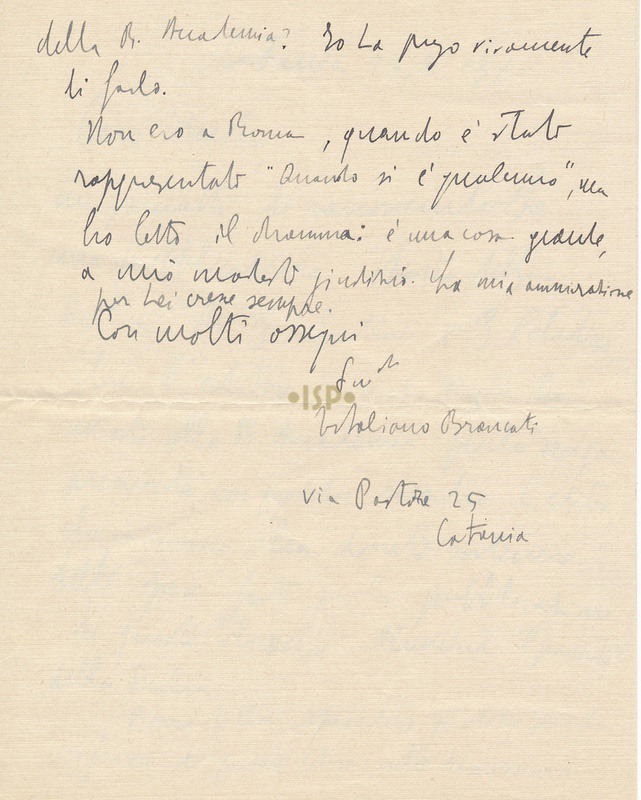 della R. Accademia? Io La prego vivamente
di farlo.
Non ero a Roma, quando è stato
rappresentato "Quando si è qualcuno", ma
ho letto il dramma: è una cosa grande,
a mio modesto giudizio. La mia ammirazione
per Lei cresce sempre.
Con molti ossequi
•ISP•
Vitaliano Brancati
via Pastore 25
Catania